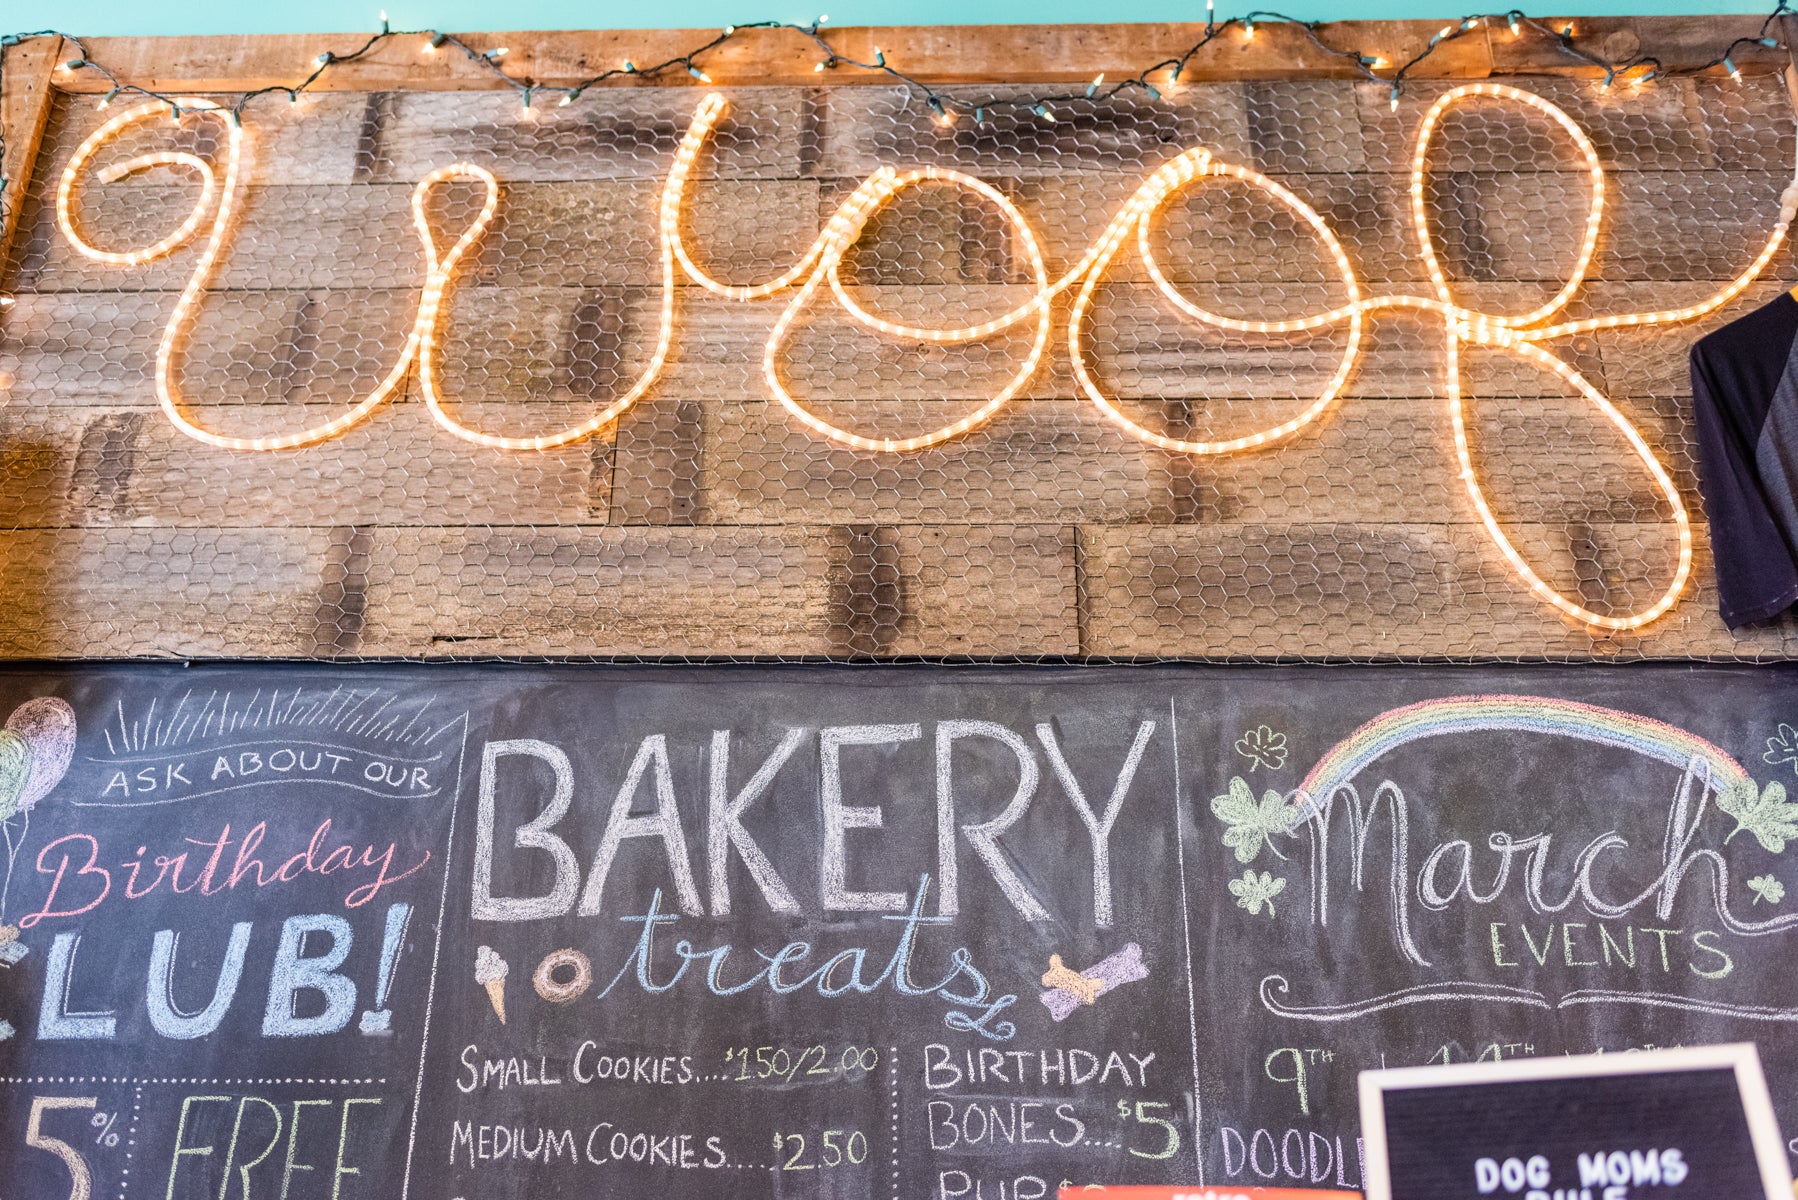 Woof
ASK ABOUT OUR
Birthday
LUB!
5%
FREE
BAKERY
treats
SMALL COOKIES....$150/2.00
MEDIUM COOKIES.....$2.50
BIRTHDAY
BONES....$5
March
EVENTS
9TH
DOODL
DOG MOMS